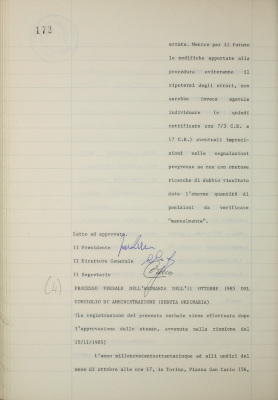 172
errata. Mentre per il futuro
le modifiche apportate alla
procedura eviteranno il
ripetersi degli errori, non
sarebbe invece agevole
individuare (e quindi
rettificare con 7/3 C.E. e
17 C.R.) eventuali impreci-
zioni nelle segnalazioni
pregresse se non con onerose
ricerche di dubbio risultato
data l'enorme quantità di
posizioni da verificare
"manualmente".
Letto ed approvato.
Il Presidente
Il Direttore Generale
Il Segretario
(4)
PROCESSO VERBALE DELL'ADUNANZA DELL'11 OTTOBRE 1985 DEL
CONSIGLIO DI AMMINISTRAZIONE (SEDUTA ORDINARIA)
(La registrazione del presente verbale viene effettuata dopo
l'approvazione dello stesso, avvenuta nella riunione del
15/11/1985)
L'anno millenovecentottantacinque ed alli undici del
mese di ottobre alle ore 17, in Torino, Piazza San Carlo 156,